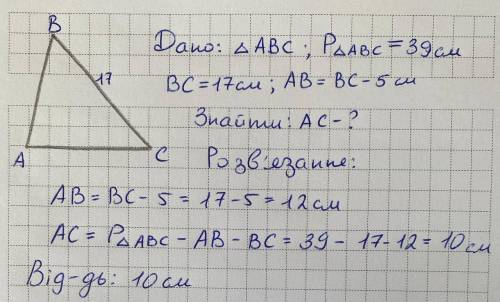 B
Дано: △ABC; P△ABC = 39 см
17
BC = 17 см; AB = BC - 5 см
Знайти: AC - ?
A
C
Розв'язання:
AB = BC - 5 = 17 - 5 = 12 см
AC = P△ABC - AB - BC = 39 - 17 - 12 = 10 см
Від-дь: 10 см